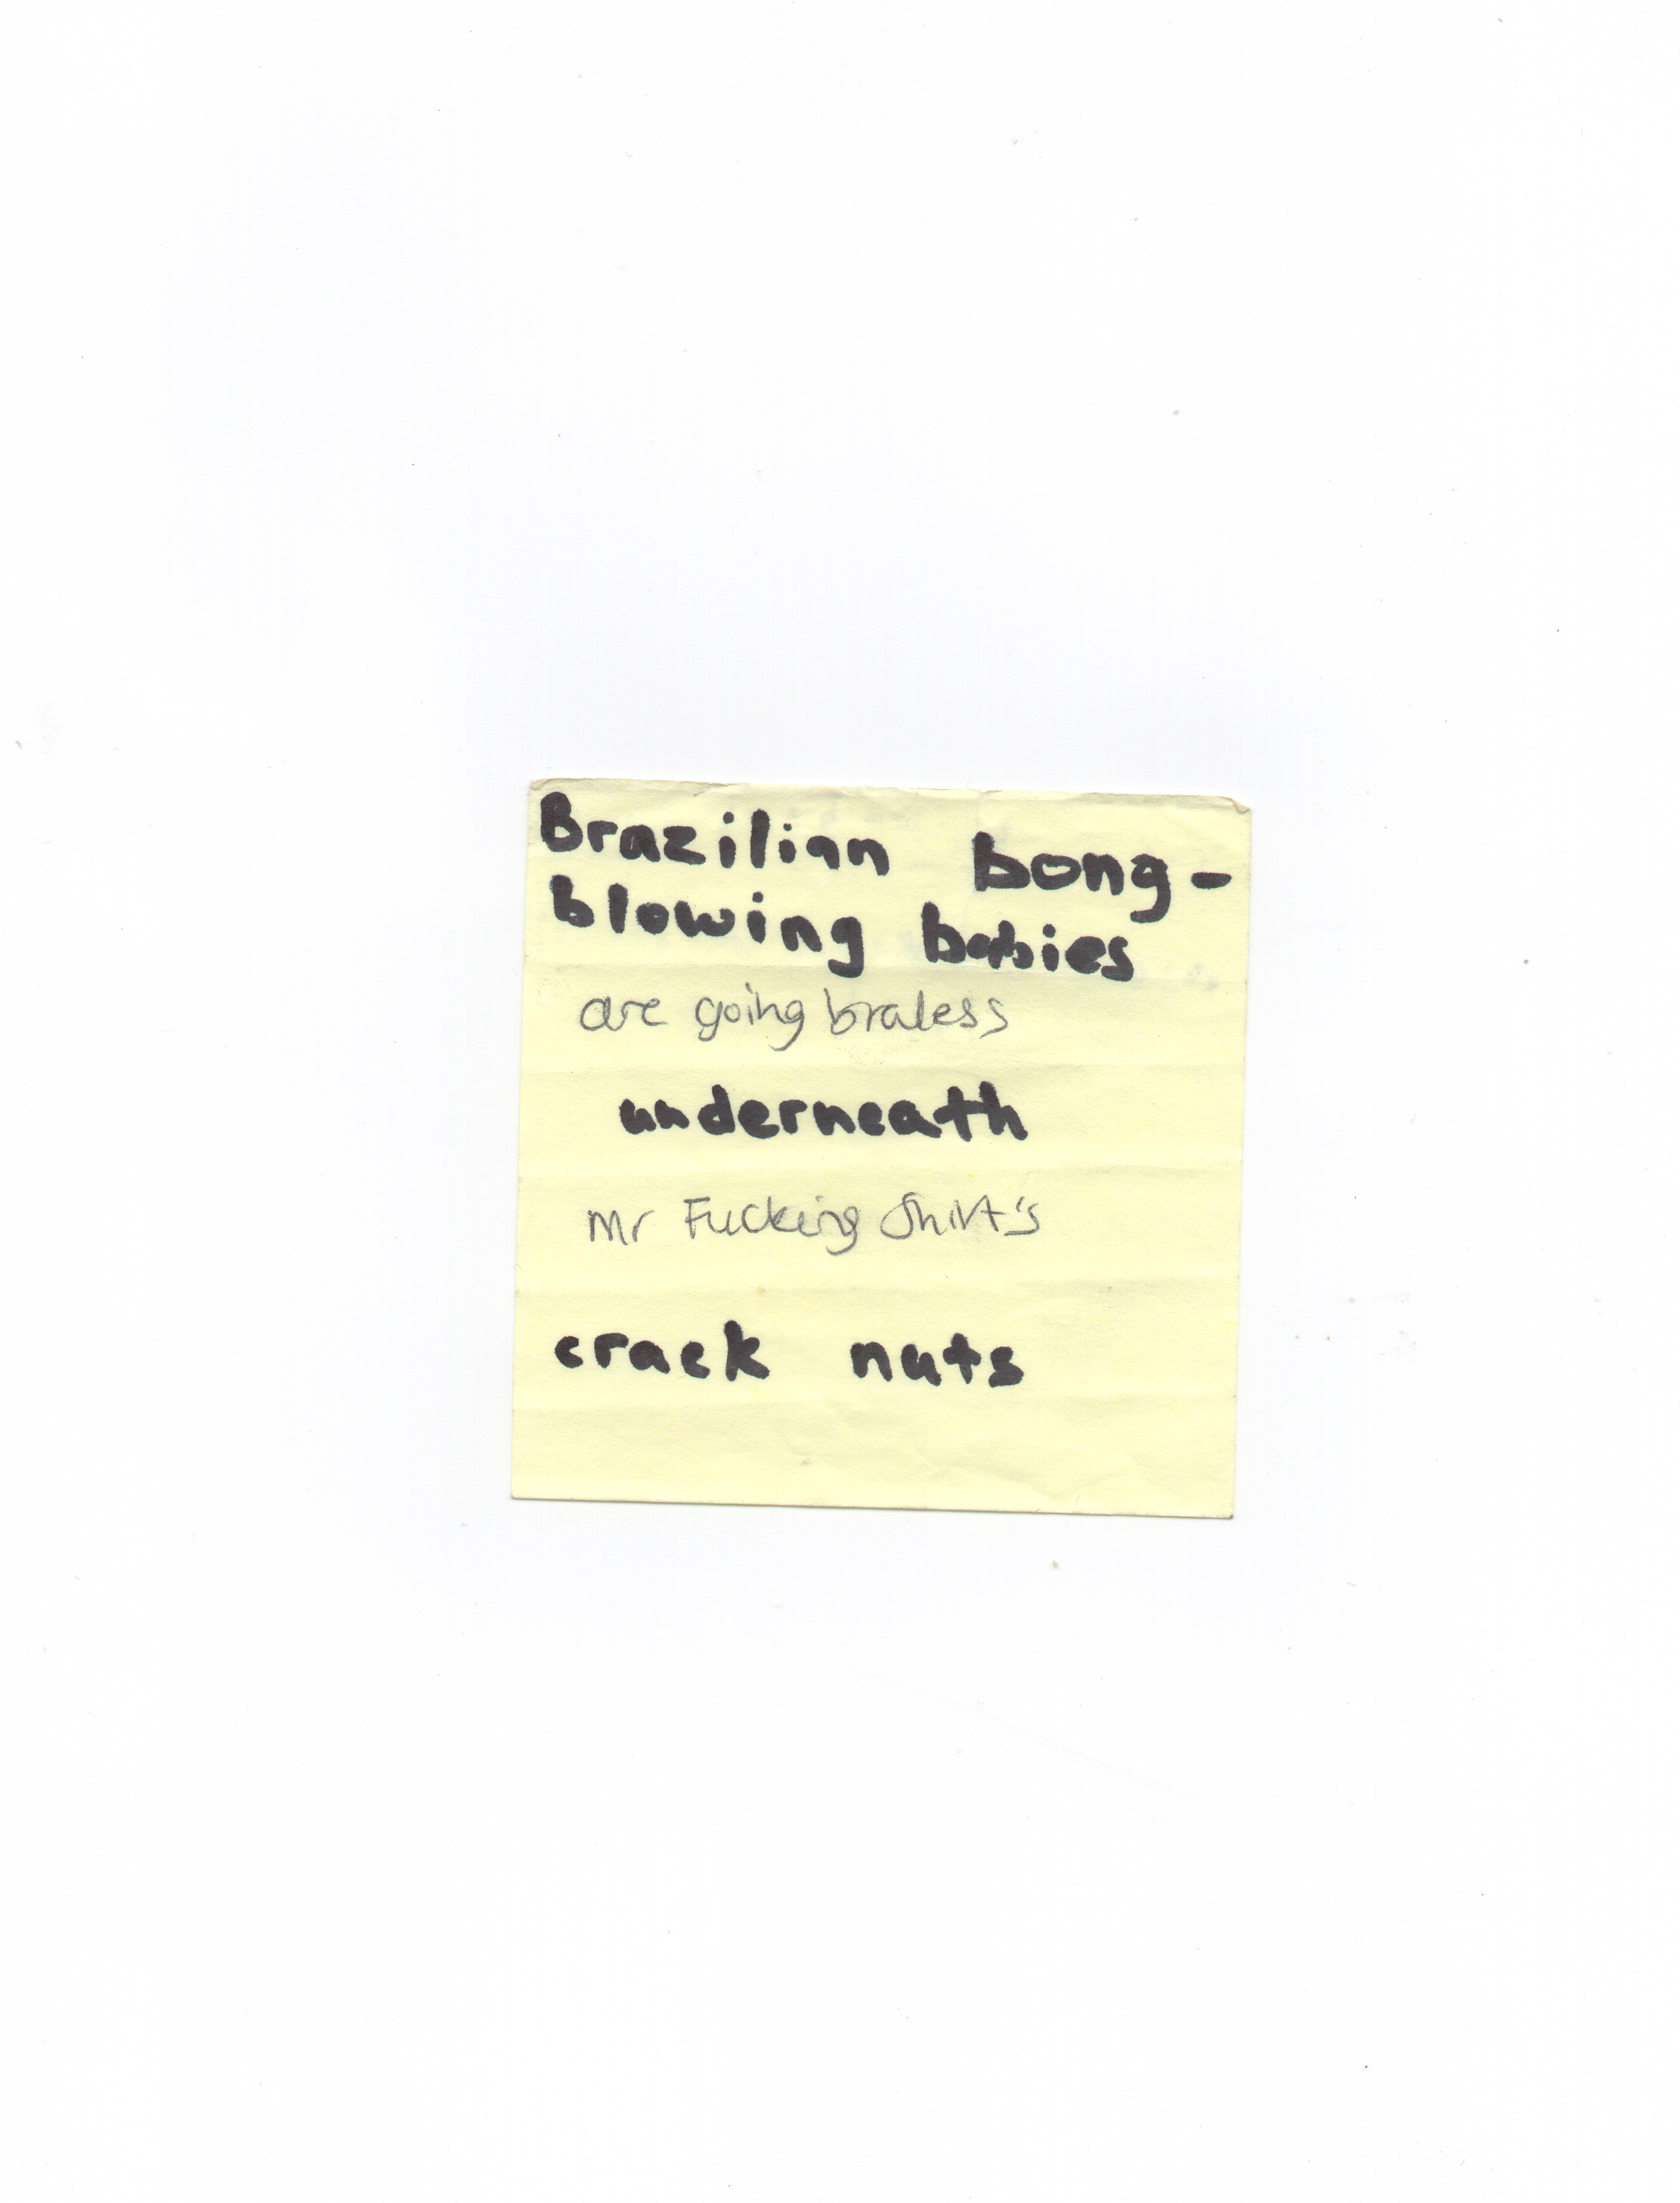 Brazilian bong-
blowing babies
are going braless
underneath
Mr Fucking Shirt's
crack nuts